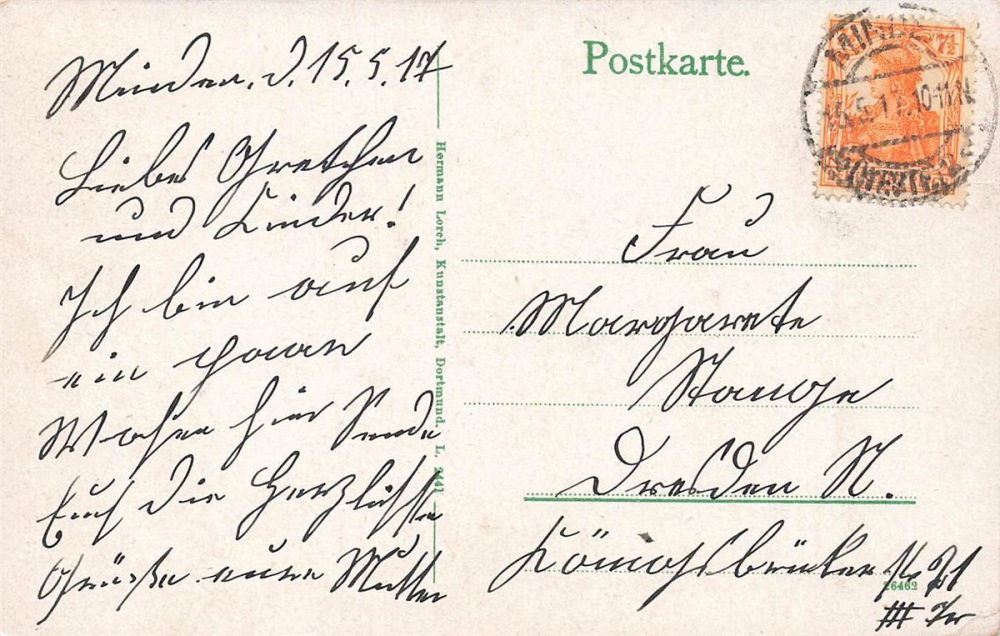 Minden, d. 15.5.17
Liebes Gretchen
und Kinder!
Ich bin auf
ein paar
Wochen hier Sende
Euch die Herzlichsten
Grüße eure Mutter
Hermann Lorch, Kunstanstalt, Dortmund. L. 2441
Postkarte.
7½
MINDEN
15.5.17. 10-11 N
(WESTF.)
Frau
Margarete
Stange
Dresden N.
Königsbrücker Str 21
III
26462